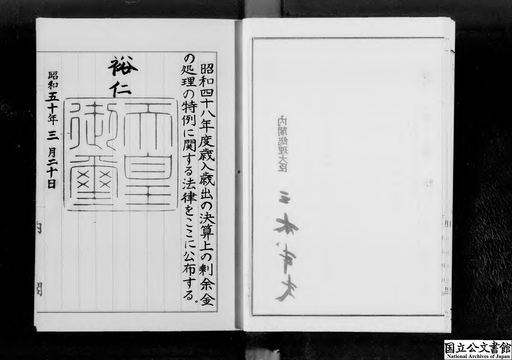 昭和四十八年度歳入歳出の決算上の剰余金
の処理の特例に関する法律をここに公布する
裕仁
天皇
御璽
昭和五十年三月二十日
内閣総理大臣
三木武夫
国立公文書館
National Archives of Japan